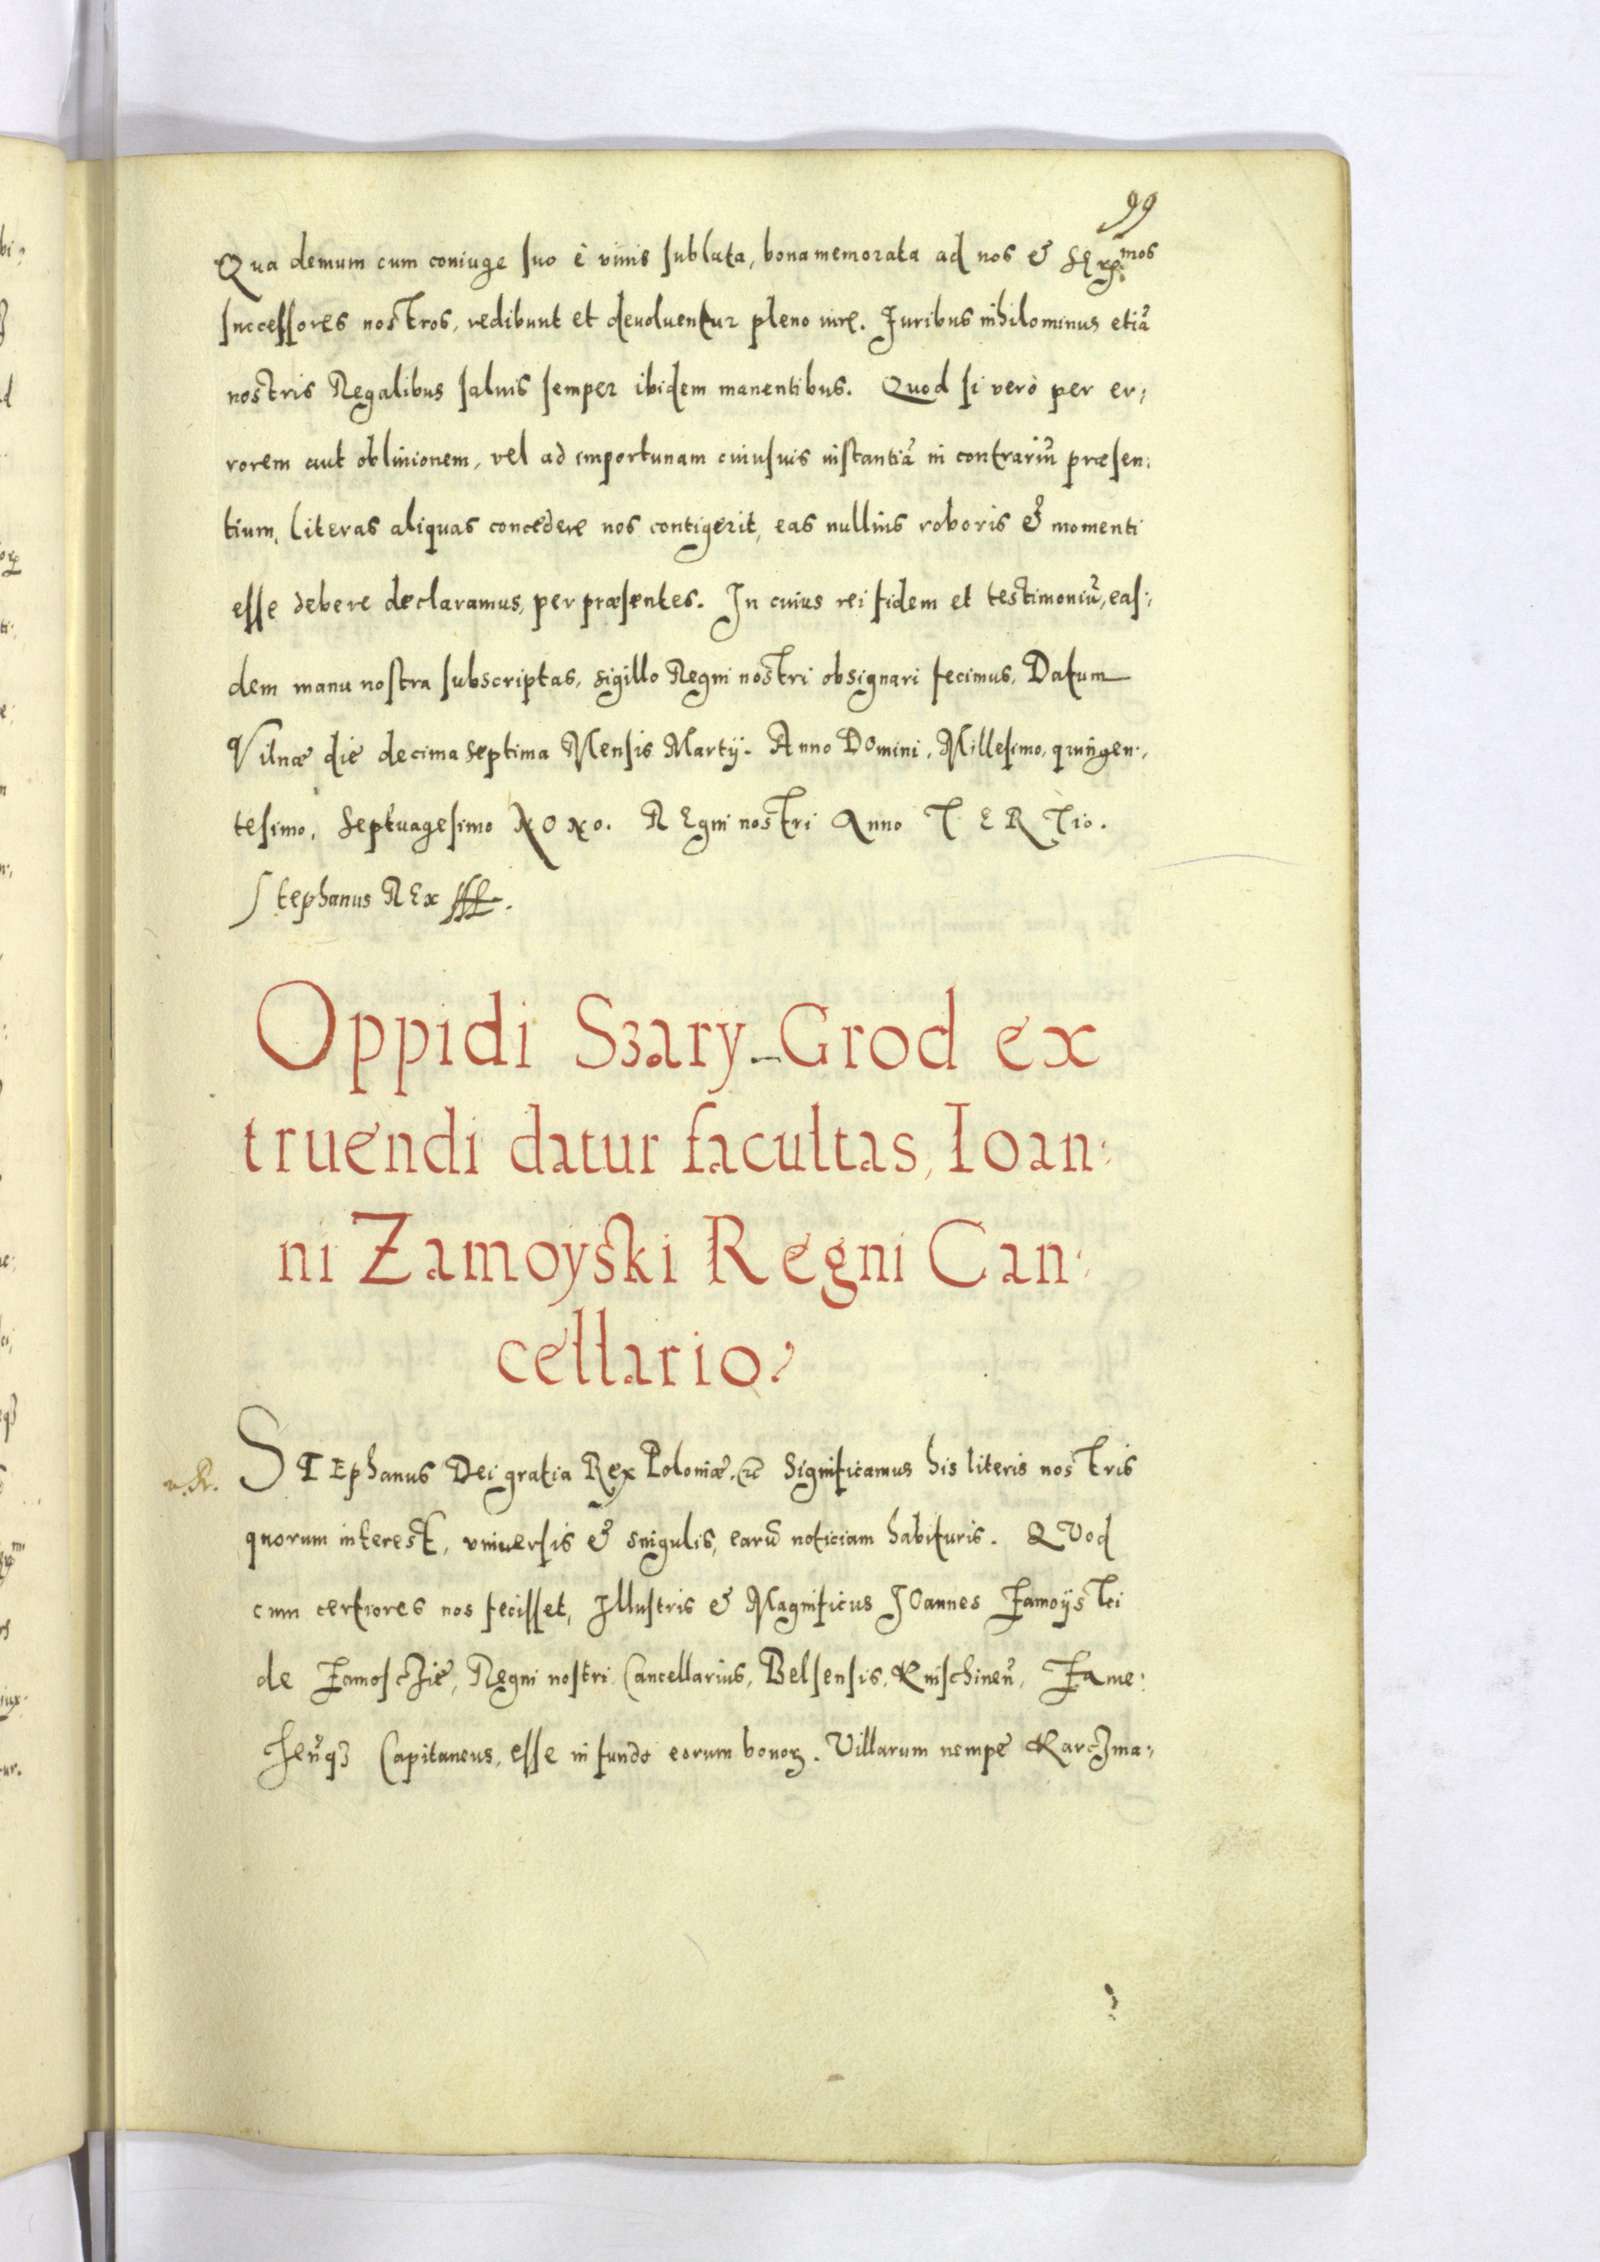 99
Qua demum cum coniuge suo è viuis sublata, bona memorata ad nos & Ser:mos
successores nostros, redibunt et deuoluentur pleno iure. Iuribus nihilominus etiã
nostris Regalibus saluis semper ibidem manentibus. Quod si verò per er:
rorem aut obliuionem, vel ad importunam cuiusuis instantiã in contrariũ præsen:
tium, literas aliquas concedere nos contigerit, eas nullius roboris & momenti
esse debere declaramus, per præsentes. In cuius rei fidem et testimoniũ, eas:
dem manu nostra subscriptas, sigillo Regni nostri obsignari fecimus, Datum
Vilnæ die decima septima Mensis Martij. Anno Domini, Millesimo, quingen:
tesimo, septuagesimo NONO. REgni nostri Anno TERTio.
Stephanus REx
Oppidi Szary Grod ex
truendi datur facultas, Ioan:
ni Zamoyski Regni Can:
cellario.
STEphanus Dei gratia Rex Poloniæ, &c Significamus his literis nosTris
quorum interest, vniuersis & singulis, earũ noticiam habituris. QVod
cum certiores nos fecisset, Illustris & Magnificus IOannes Zamoyski
de Zamosczie, Regni nostri Cancellarius, Belsensis, Knischineñ, Zame:
cheñqꝫ Capitaneus, esse in fundo eorum bonoꝝ. Villarum nempe Karczma: